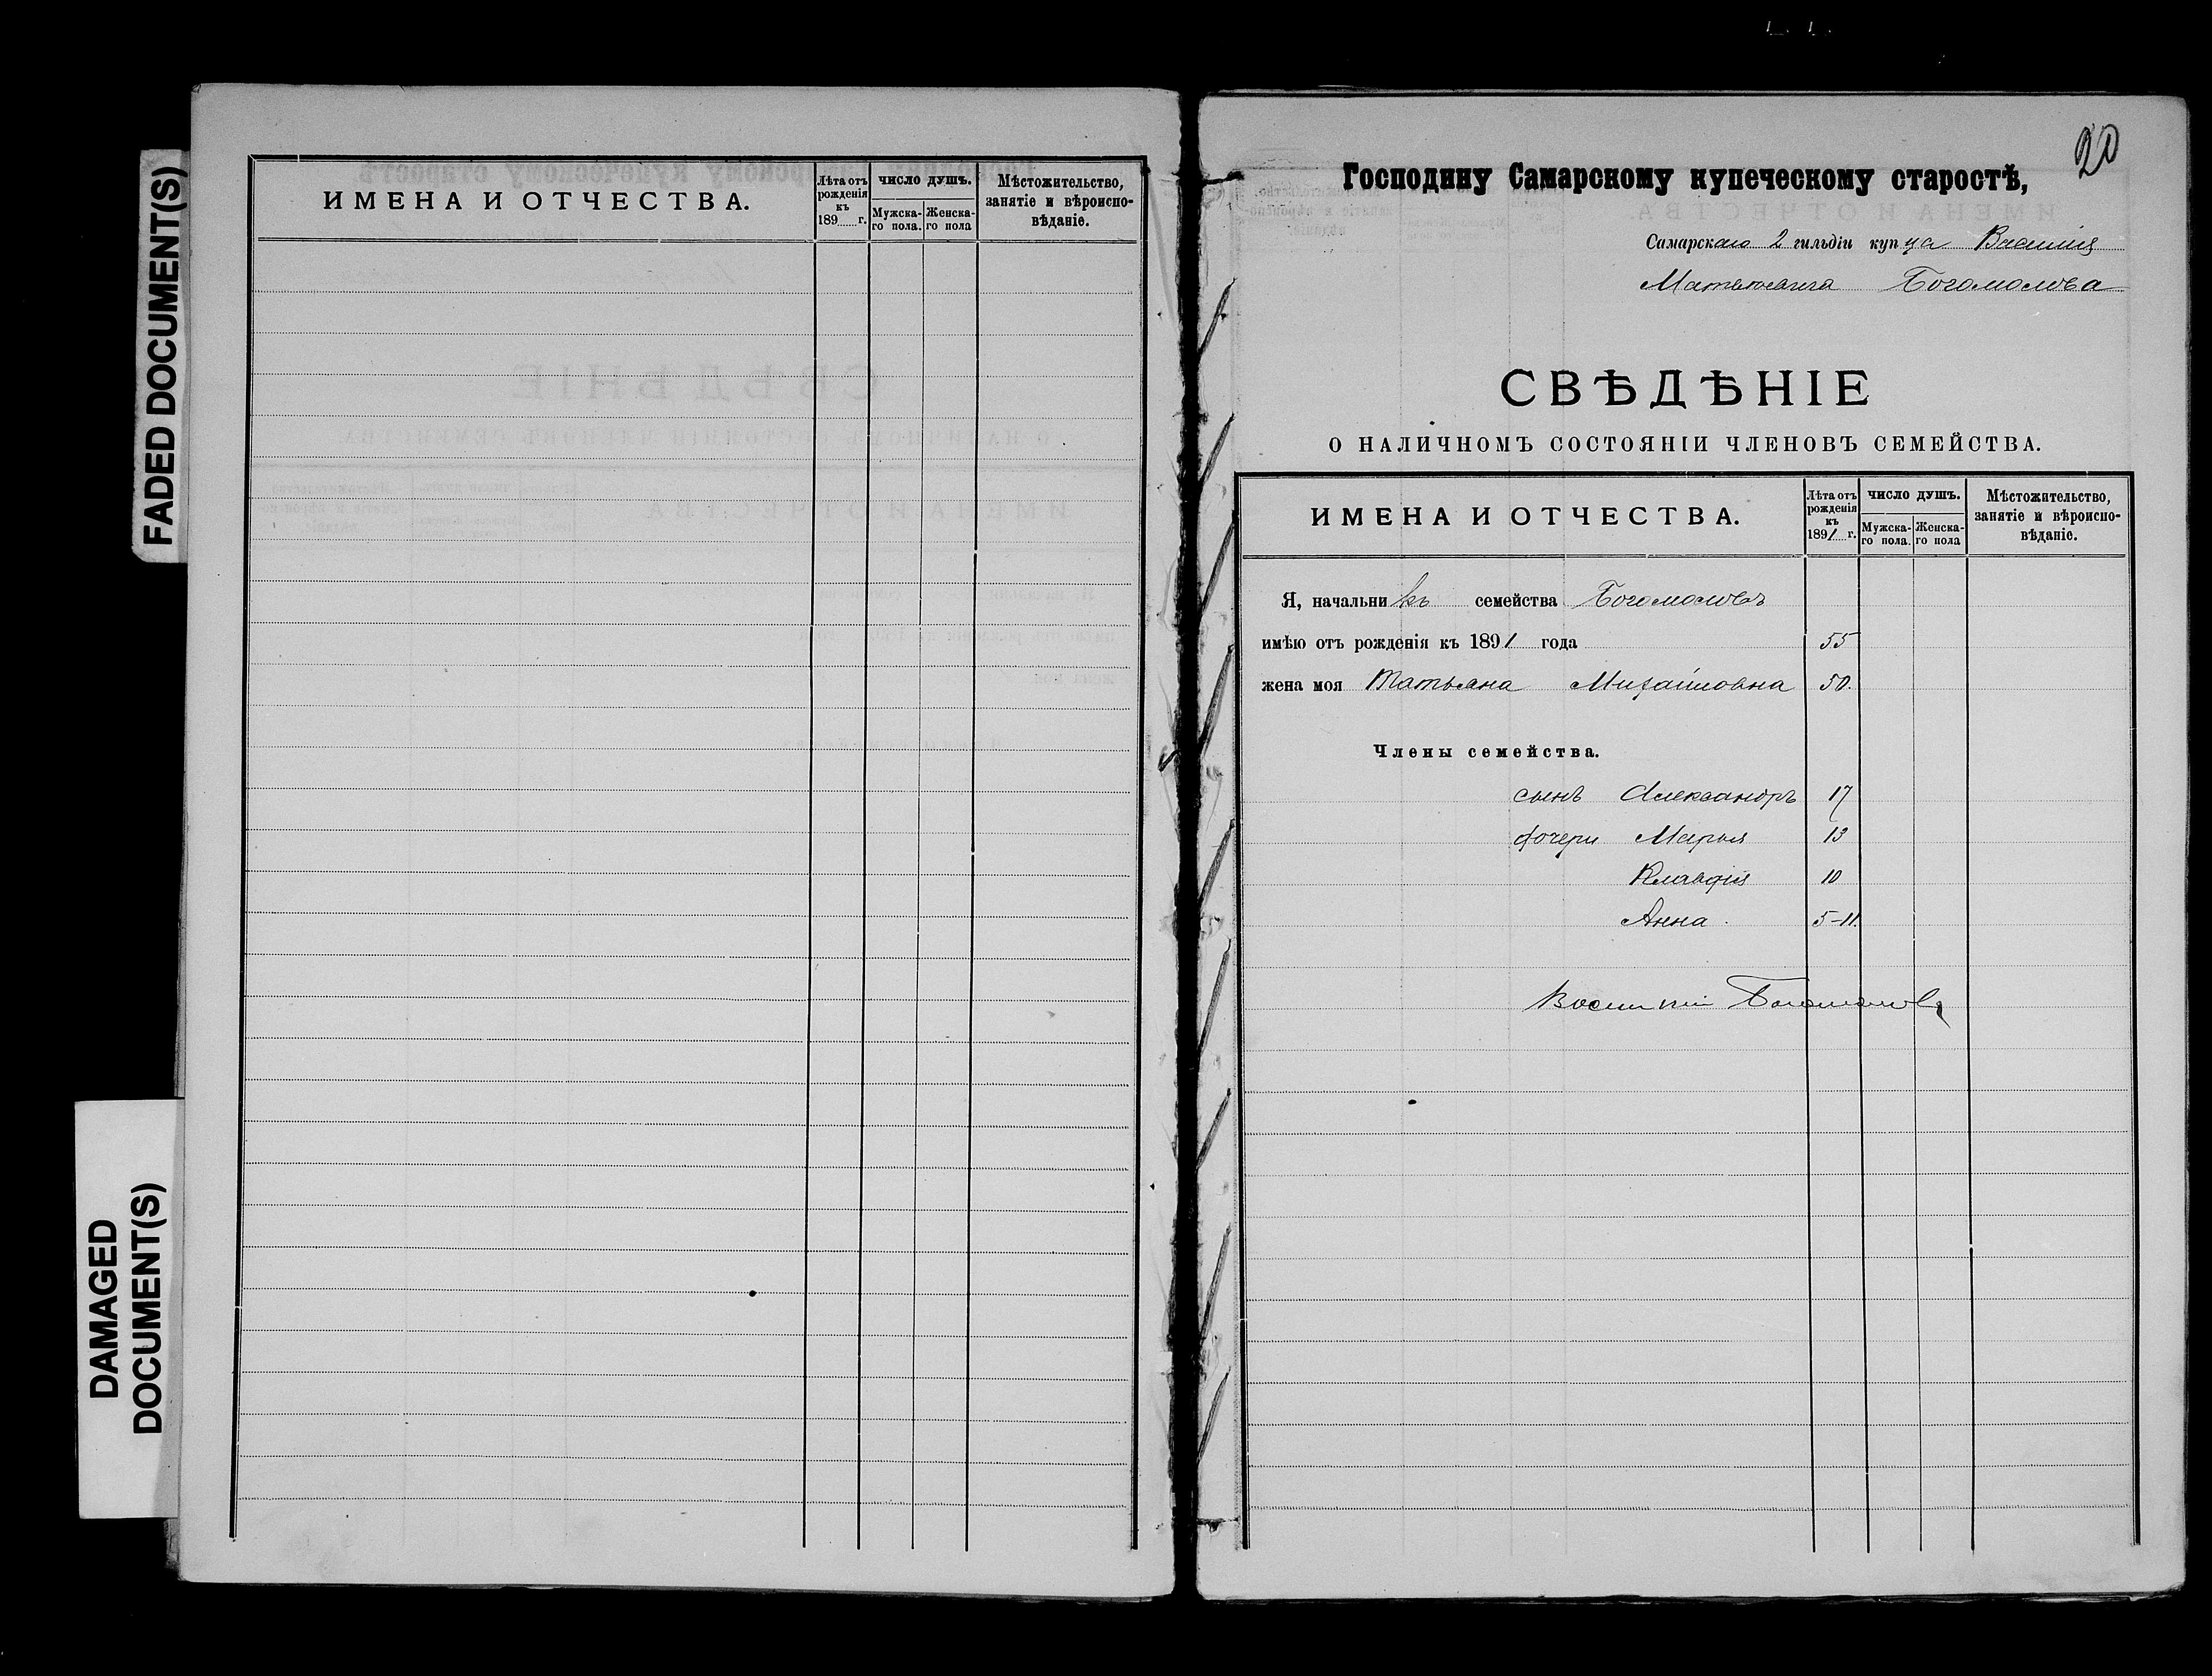 FADED DOCUMENT(S)
DAMAGED
DOCUMENT(S)
ИМЕНА И ОТЧЕСТВА.
Лѣта отъ
рожденія
къ
189 г.
ЧИСЛО ДУШЪ.
Мужска-
го пола.
Женска-
го пола
Мѣстожительство,
занятіе и вѣроиспо-
вѣданіе.
20
Господину Самарскому купеческому старостѣ,
Самарскаго 2 гильдіи купца Василия
Матвѣевича Богомолова
СВѢДѢНІЕ
О НАЛИЧНОМЪ СОСТОЯНІИ ЧЛЕНОВЪ СЕМЕЙСТВА.
ИМЕНА И ОТЧЕСТВА.
Лѣта отъ
рожденія
къ
1891 г.
ЧИСЛО ДУШЪ.
Мужска-
го пола.
Женска-
го пола
Мѣстожительство,
занятіе и вѣроиспо-
вѣданіе.
Я, начальникъ семейства Богомоловъ
имѣю отъ рожденія къ 1891 года 55
жена моя Татьяна Михайловна 50.
Члены семейства.
сынъ Александръ 17
дочери Марья 13
Клавдия 10
Анна. 5-11.
Василий Богомолов